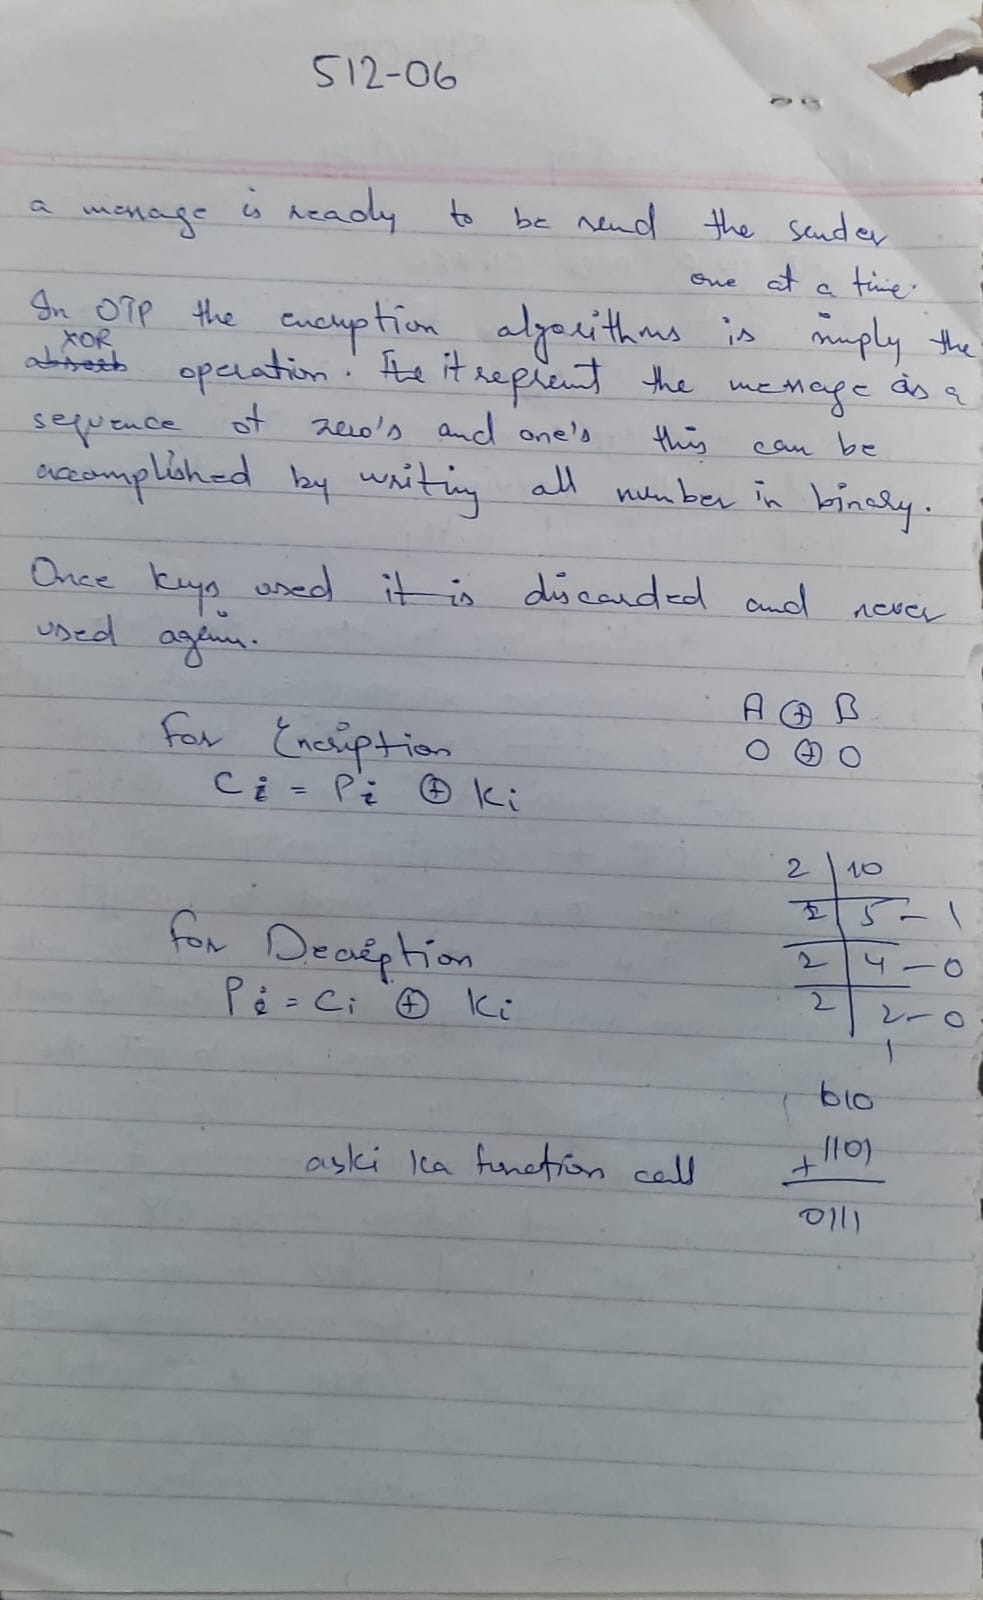 512-06
a message is ready to be send the sender
one at a time.
In OTP the encryption algorithms is simply the
XOR
operation. It it represent the message as a
sequence of zero's and one's this can be
accomplished by writing all number in binary.
Once keys used it is discarded and never
used again.
A ⊕ B
For Encription
0 ⊕ 0
Ci = Pi ⊕ Ki
2 | 10
2 | 5 - 1
For Decription
2 | 4 - 0
Pi = Ci ⊕ Ki
2 | 2 - 0
1
010
aski ka function call
+ 1101
0111